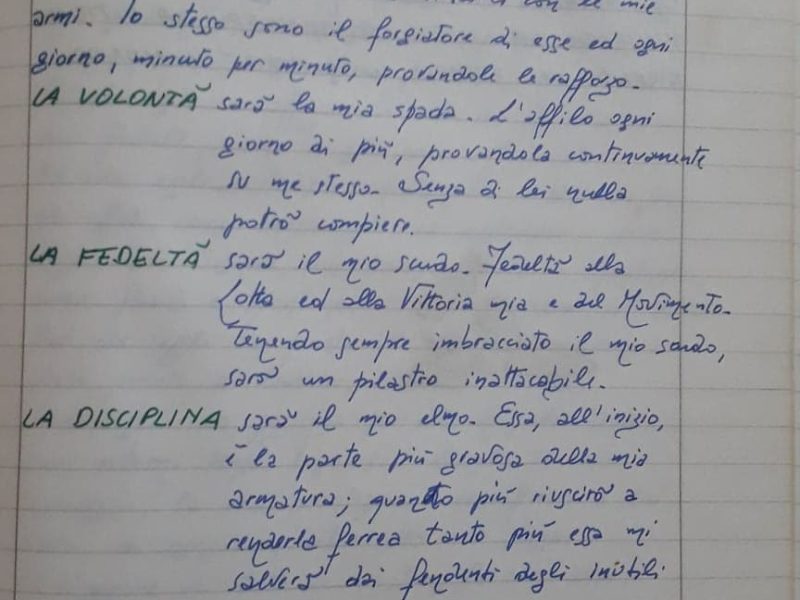 con le mie
armi. Io stesso sono il forgiatore di esse ed ogni
giorno, minuto per minuto, provandole le rafforzo.
LA VOLONTÀ sarà la mia spada. L'affilo ogni
giorno di più, provandola continuamente
su me stesso. Senza di lei nulla
potrò compiere.
LA FEDELTÀ sarà il mio scudo. Fedeltà alla
Lotta ed alla Vittoria mia e del Movimento.
Tenendo sempre imbracciato il mio scudo,
sarò un pilastro inattacabile.
LA DISCIPLINA sarà il mio elmo. Essa, all'inizio,
è la parte più gravosa della mia
armatura; quanto più riuscirò a
renderla ferrea tanto più essa mi
salverà dai fendenti degli inutili